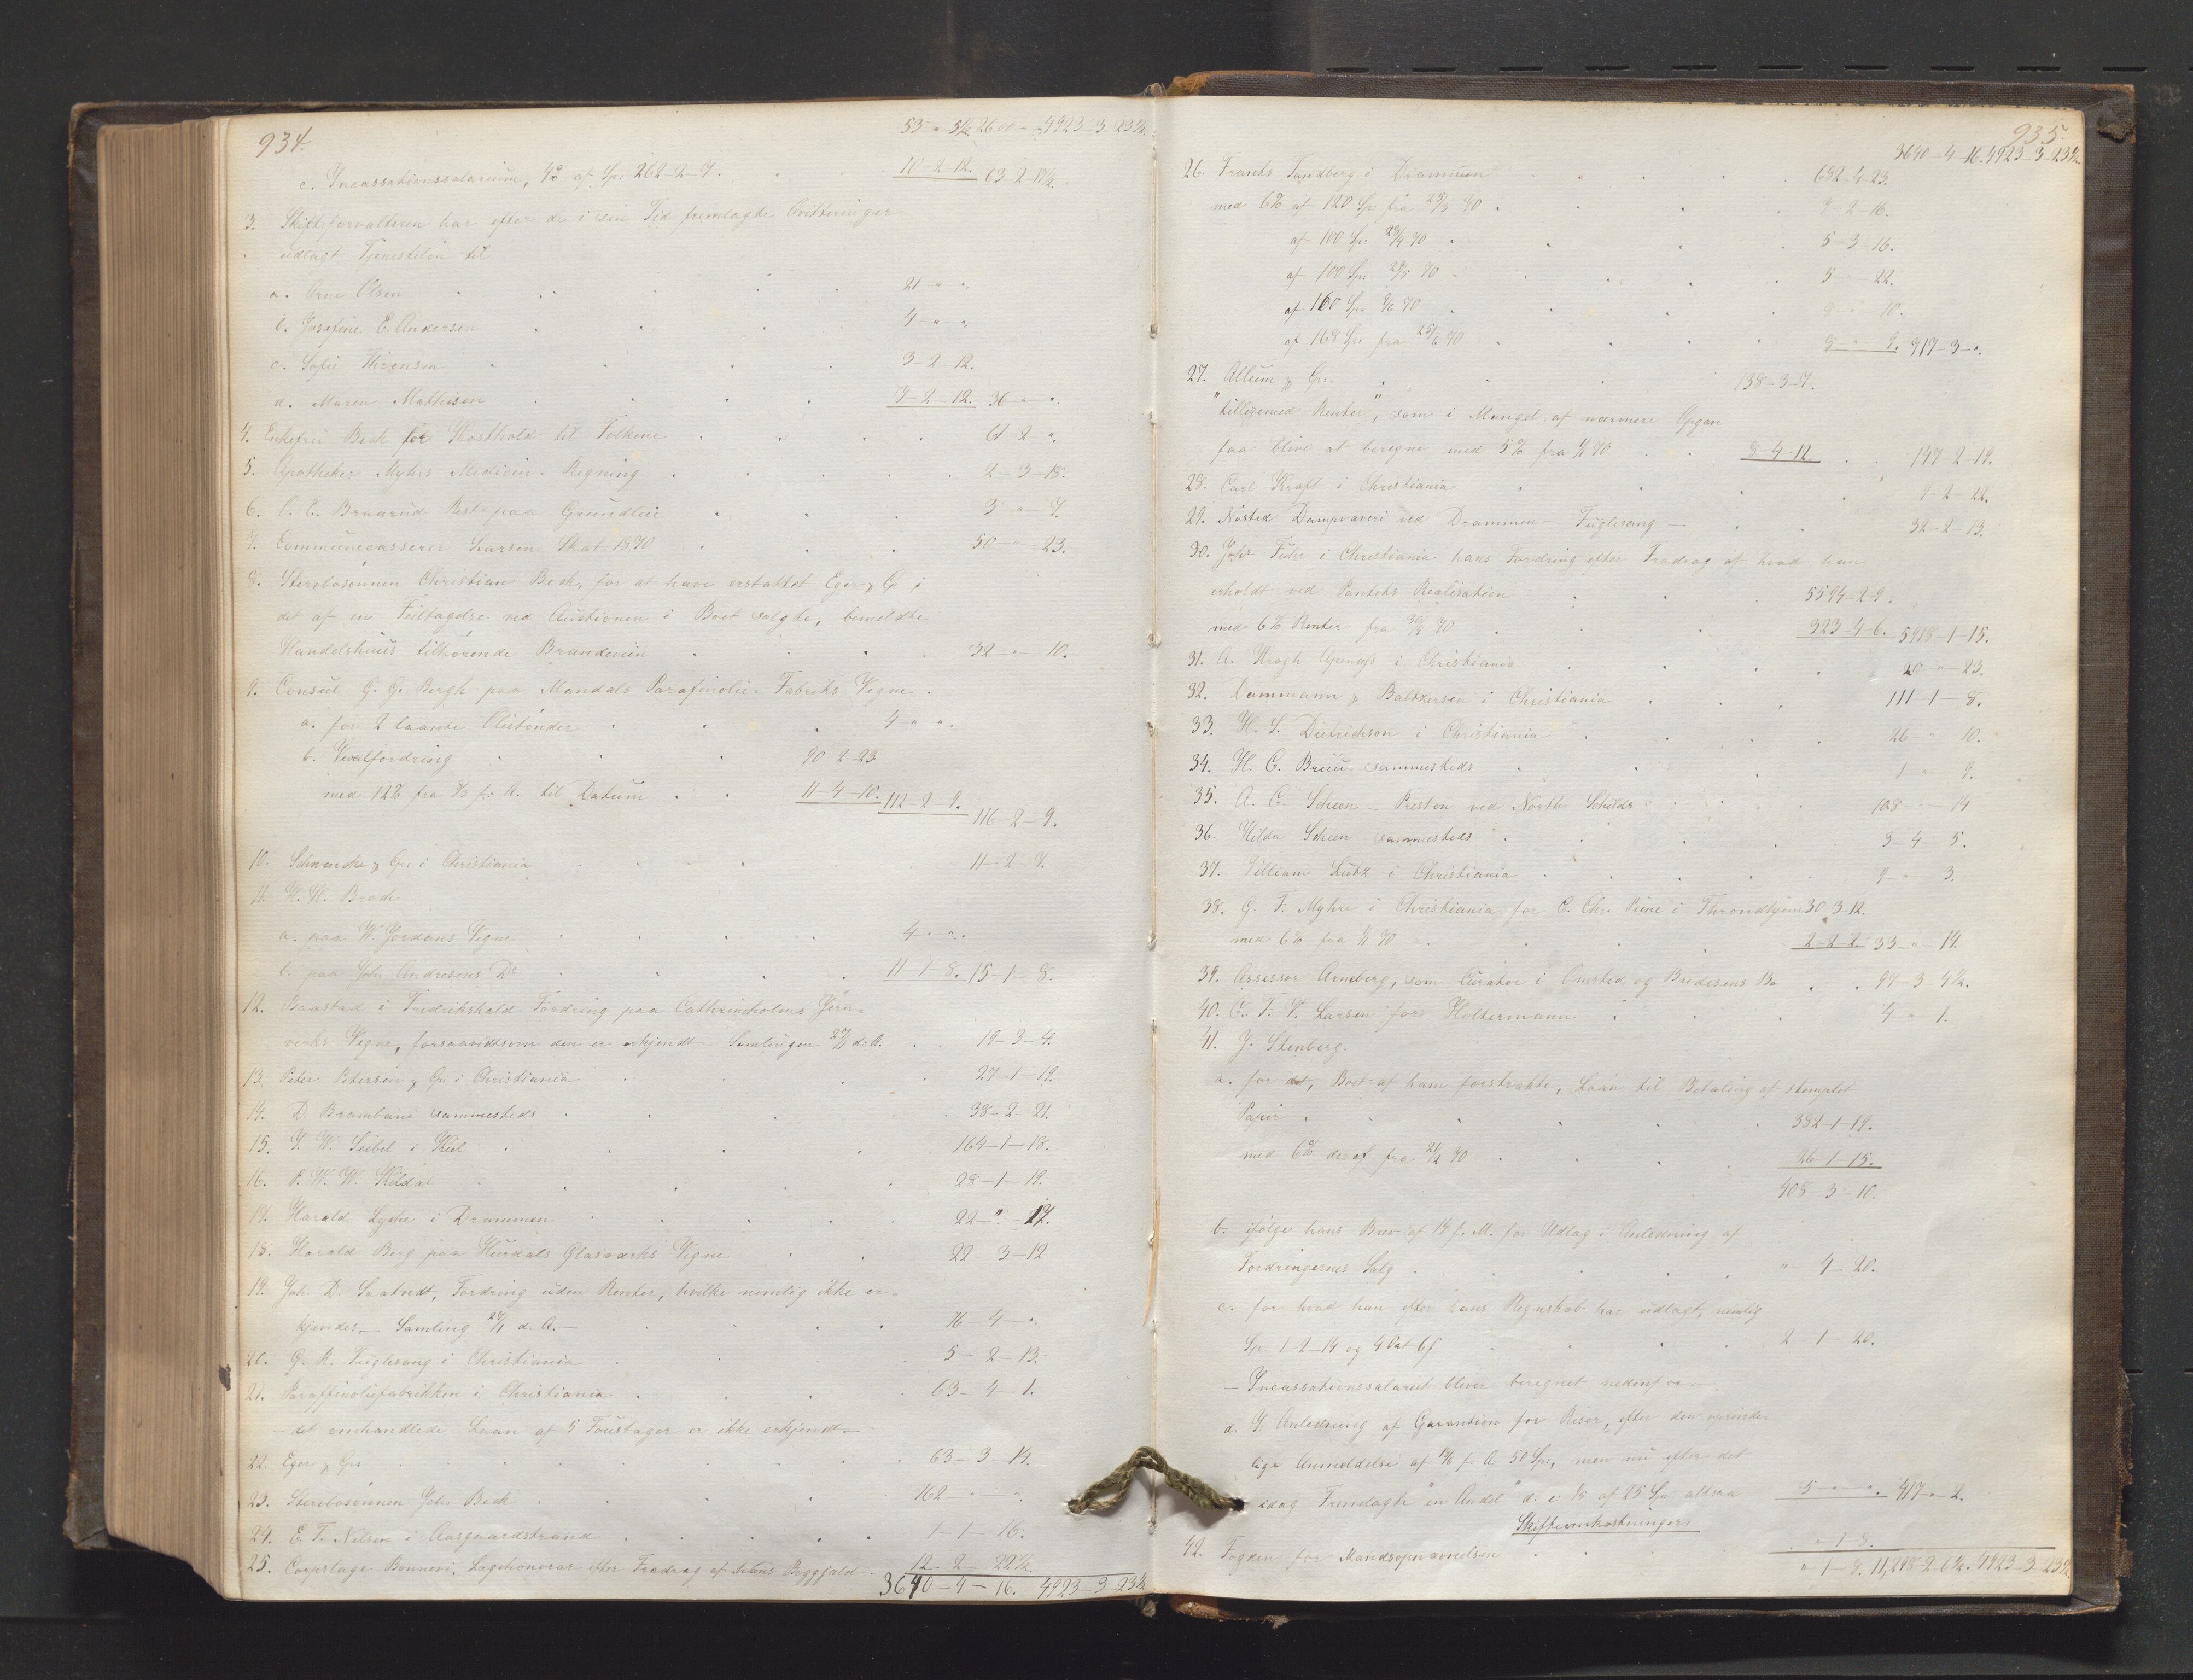 934.
53 " 5½ 2600 " " 4923-3-23½
c. Incassationssalarium, 4% af Sp: 262-2-7. 10-2-12. 63-2-17½
3. Skifteforvalteren har efter de i sin Tid fremlagte Qvitteringer
udlagt Tjenesteløn til
a. Arne Olsen 21 " "
b. Josefine E. Andersen 4 " "
c. Sofie 3-2-12.
d. Maren Mathisen 7-2-12. 36 " "
4. Enkefru Beck for Kosthold til Folkene 61-2 "
5. Apotheker Myhrs Medicin-Regning 2-3-18.
6. C. E. Braarud Rest paa Grundleie 3 " 7.
7. Communecasserer Larsen Skat 1870 50 " 23.
8. Stervbosønnen Christian Beck, for at have erstattet Eger & Co i
det af en Feiltagelse ved Auctionen i Boet solgte, bemeldte
Handelshuus tilhørende Brændeviin 32 " 10.
9. Consul G. G. Bergh paa Mandals Parafinolie-Fabriks Vegne
a. for 2 laante Olietønder 4 " "
b. Vexelfordring 90-2-23
med 12% fra til Datum 11-4-10. 112-2-9.
116-2-9.
10. & Co i Christiania 11-2-7.
11. H. H. Broch
a. paa W. Jordans Vegne 4 " "
b. paa Joh. Andresens Do 11-1-8. 15-1-8.
12. Baastad i Fredrikshald Fordring paa Cathrineholms Jern-
verks Vegne, forsaavidtsom den er erkjendt - Samlingen 27/1 d. A. 19-3-4.
13. Peter Petersen & Co i Christiania 27-1-19.
14. D. Brambani sammesteds 38-2-21.
15. I. W. Seibel i Kiel 164-1-18.
16. P. W. W. Kildal 28-1-19.
17. Harald Lyche i Drammen 22 " 12.
18. Harald Berg paa Hurdals Glasværks Vegne 22-3-12
19. Joh. D. Fordring uden Renter, hvilke nemlig ikke er-
kjendes, - Samling 27/1 d. A. - 16-4 "
20. G. R. Fuglesang i Christiania 5-2-13.
21. Paraffinoliefabrikken i Christiania 63-4-1.
- det omhandlede Laan af 5 Foustager er ikke erkjendt -
22. Eger & Co 63-3-14.
23. Stervbosønnen Joh. Beck 162 " "
24. E. T. Nilsen i Aasgaardstrand 1-1-16.
25. Corpslæge Bonnevi, Lægehonorar efter Fradrag af hans Byggjæld 12-2-22½.
3640-4-16. 4923-3-23½
935.
3640-4-16. 4923-3-23½
26. Frants Tandberg i Drammen 682-4-23.
med 6% af 120 Sp. fra 23/3 70 7-2-16.
af 100 Sp. 23/4 70 5-3-16.
af 100 Sp. 70 5 " 22.
af 160 Sp. 70 9 " 10.
af 168 Sp. fra 25/6 70 9 " 9. 719-3 "
27. Allum & Co. 138-3-7.
"tilligemed Renter", som i Mangel af nærmere Opgave
faa blive at beregne med 5% fra 70 8-4-12. 147-2-19.
28. Carl Kraft i Christiania 7-2-22.
29. Nøsted Dampvæveri ved Drammen - Fuglesang - 32-2-13.
30. Johs Fuhr i Christiania hans Fordring efter Fradrag af hvad han
erholdt ved Pantets Realisation 5594-2-9.
med 6% Renter fra 70 323-4-6. 5918-1-15.
31. A. Krogh i Christiania 20 " 23.
32. Dammann & Baltzersen i Christiania 111-1-8.
33. H. L. Dietrichson i Christiania 26 " 10.
34. H. C. Bruu sammesteds 1 " 9.
35. A. C. Scheen - Preston ved North Schilds 108 " 14
36. Hilda Scheen sammesteds 3-4-5.
37. William Lutz i Christiania 9 " 3.
38. G. F. Myhre i Christiania for C. Chr. Piene i Throndhjem 30-3-12.
med 6% fra 70 2-2-2. 33 " 14.
39. Assessor Arneberg, som Curator i Omsted og Bredesens Bo 97-3-4½.
40. C. F. V. Larsen for Holtermann 4 " 1.
41. J. Stenberg.
a. for det, Boet af ham forstrakte, Laan til Betaling af stemplet
Papir 382-1-19.
med 6% deraf fra 70 26-1-15.
408-3-10.
b. ifølge hans Brev af 14 f. M. for Udlæg i Anledning af
Fordringernes Salg " 4-20.
c. for hvad han efter hans Regnskab har udlagt, nemlig
Sp. 1-2-14 og 4 6 2-1-20.
- Incassationssalariet bliver beregnet nedenfor -
d. I Anledning af Garantien for Riser, efter den oprinde-
lige Anmeldelse af f. A. 50 Sp:, men nu efter det
idag Fremlagte "en Andel" d. e. 1/5 af 25 Sp altsaa 5 " " 417 " 2.
Skifteomkostninger.
42. Fogden for Mandsopnævnelsen " 1-8.
" 1-8. 11,248-2-6½. 4923-3-23½